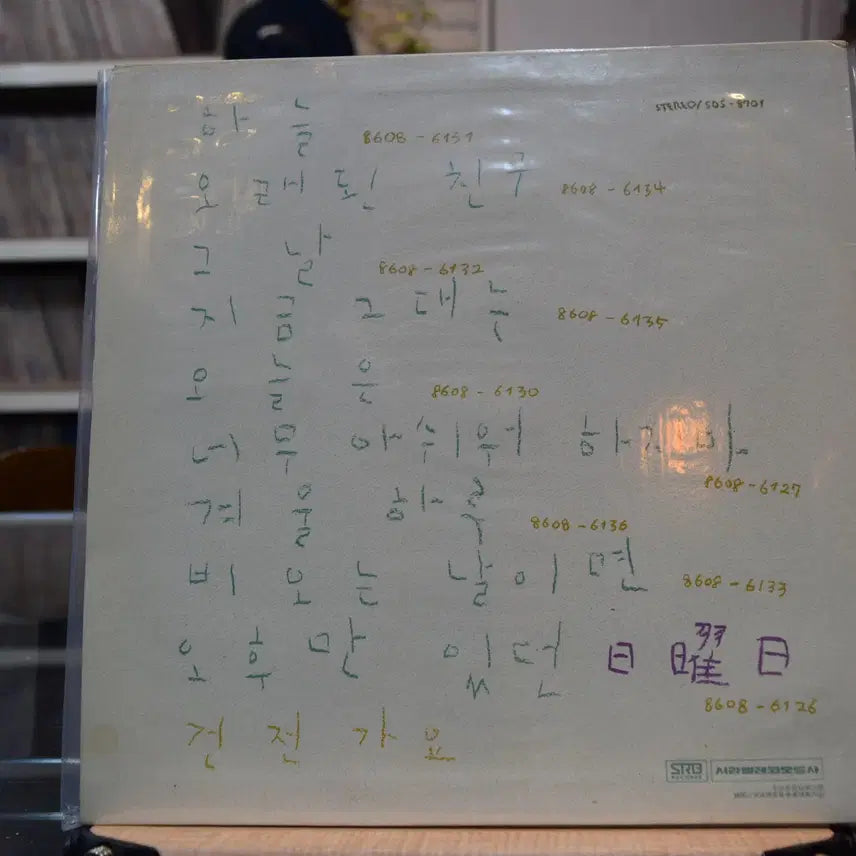 STEREO/SDS-8701
하늘 8608-6131
오래된 친구 8608-6134
그날 8608-6132
지금 그대는 8608-6135
우리들은 8608-6130
너무 아쉬워 하지마 8608-6127
겨울 하늘 8608-6136
비오는 날이면 8608-6133
오후만 있던 日曜日 8608-6126
건전가요
SRB RECORDS 서라벌레코드사